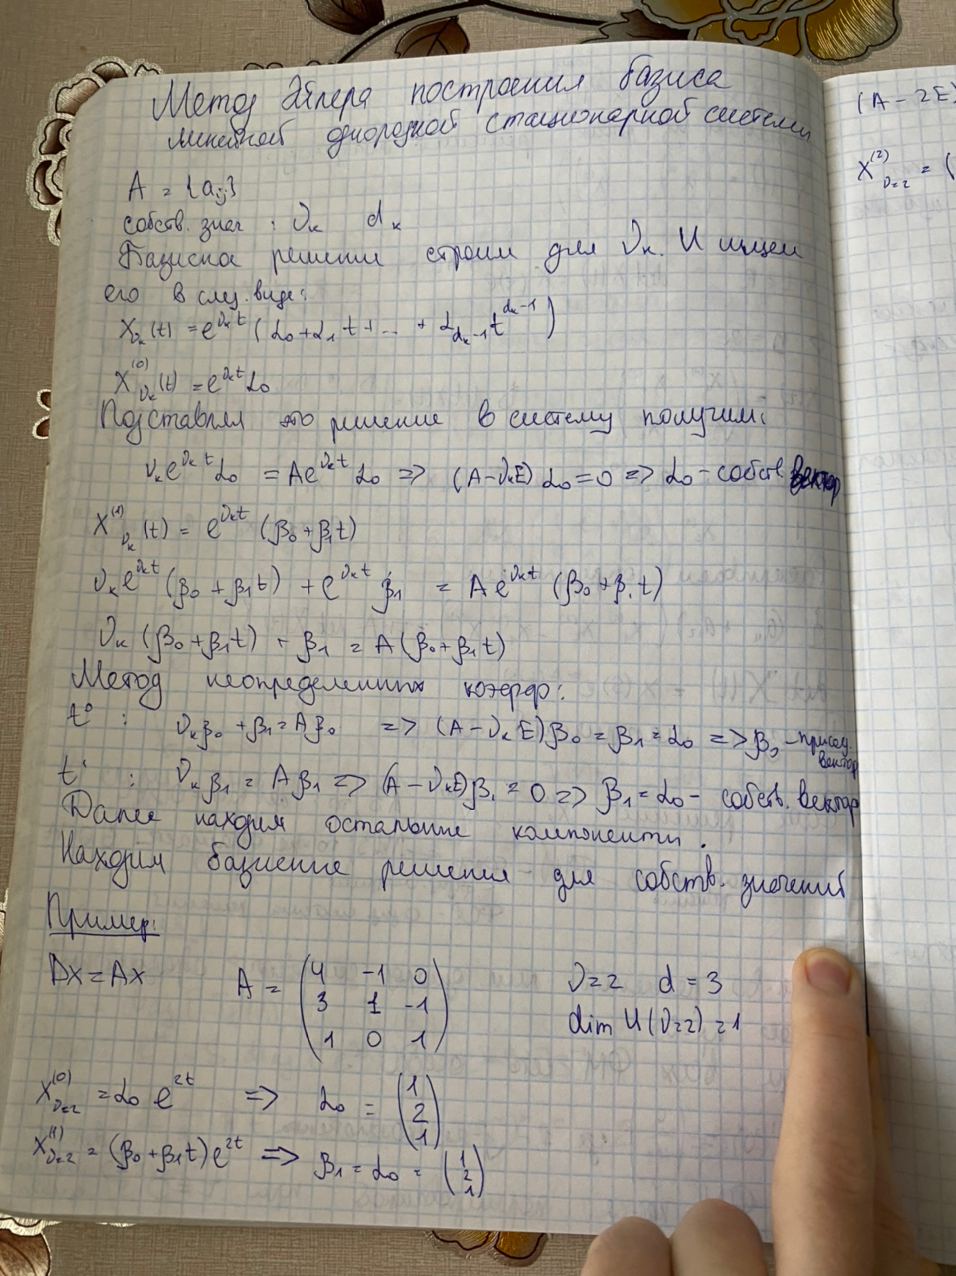 Метод Эйлера построения базиса
линейной однородной стационарной системы
A = {aᵢⱼ}
собств. знач : νₖ dₖ
Базисное решение строим для νₖ. И ищем
его в след. виде:
X_νₖ(t) = e^{νₖt} (α₀ + α₁t + ... + α_{dₖ-1} t^{dₖ-1})
X^{(0)}_νₖ(t) = e^{νₖt} α₀
Подставляя это решение в систему получим:
νₖe^{νₖt} α₀ = Ae^{νₖt} α₀ => (A-νₖE) α₀ = 0 => α₀ - собств. вектор
X^{(1)}_νₖ(t) = e^{νₖt} (β₀ + β₁t)
νₖe^{νₖt} (β₀ + β₁t) + e^{νₖt} β₁ = Ae^{νₖt} (β₀ + β₁t)
νₖ (β₀ + β₁t) + β₁ = A(β₀ + β₁t)
Метод неопределенных коэфф:
t⁰ : νₖβ₀ + β₁ = Aβ₀ => (A - νₖE)β₀ = β₁ = α₀ => β₀ - присоед. вектор
t¹ : νₖβ₁ = Aβ₁ => (A - νₖE)β₁ = 0 => β₁ = α₀ - собств. вектор
Далее находим остальные компоненты.
Находим базисные решения для собств. значений
Пример:
Dx = Ax A = (4 -1 0
3 1 -1
1 0 1) ν=2 d = 3
dim U(ν=2) = 1
X^{(0)}_{ν=2} = α₀ e^{2t} => α₀ = (1
2
1)
X^{(1)}_{ν=2} = (β₀ + β₁t) e^{2t} => β₁ = α₀ = (1
2
1)
(A - 2E)
X^{(2)}_{ν=2} = (